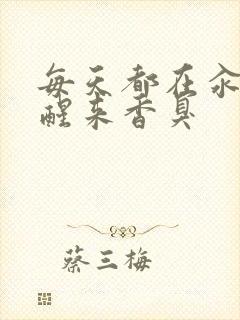 每天都在汆
醒来香臭
蔡三梅